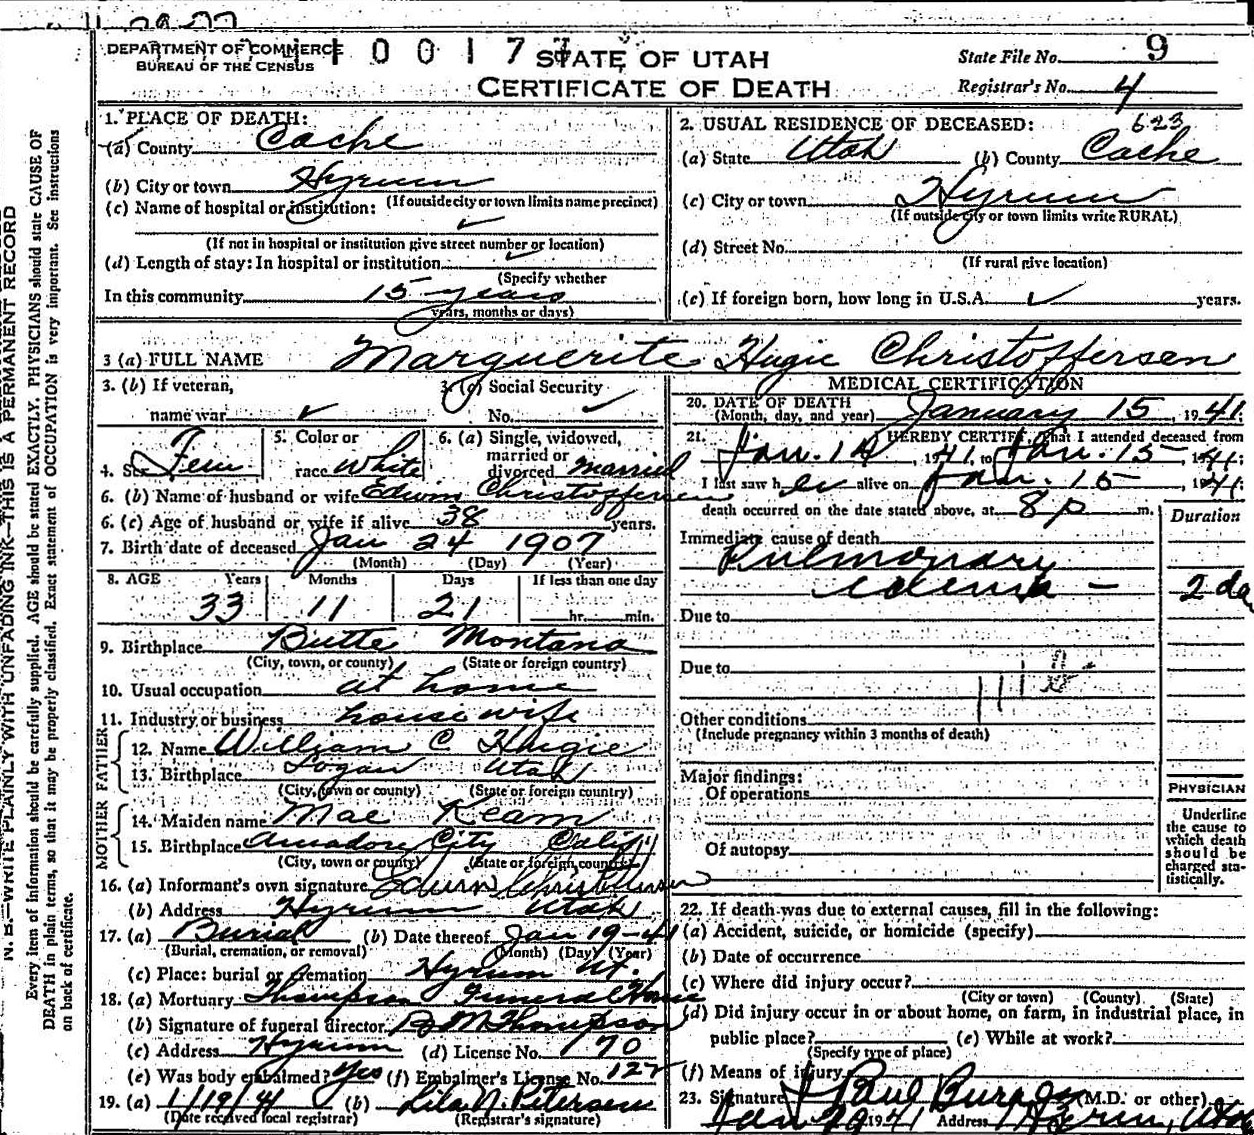 DEPARTMENT OF COMMERCE
BUREAU OF THE CENSUS
STATE OF UTAH
CERTIFICATE OF DEATH
State File No. 9
Registrar's No. 4
1. PLACE OF DEATH:
(a) County Cache
(b) City or town Hyrum
(If outside city or town limits name precinct)
(c) Name of hospital or institution:
(If not in hospital or institution give street number or location)
(d) Length of stay: In hospital or institution
(Specify whether
In this community 15 years
years, months or days)
2. USUAL RESIDENCE OF DECEASED: 623
(a) State Utah (b) County Cache
(c) City or town Hyrum
(If outside city or town limits write RURAL)
(d) Street No.
(If rural give location)
(e) If foreign born, how long in U.S.A. ✓ years.
3 (a) FULL NAME Marguerite Hugie Christoffersen
3. (b) If veteran,
name war ✓
3. (c) Social Security
No. ✓
4. Sex Fem
5. Color or
race White
6. (a) Single, widowed,
married or
divorced married
6. (b) Name of husband or wife Edwin Christoffersen
6. (c) Age of husband or wife if alive 38 years.
7. Birth date of deceased Jan 24 1907
(Month) (Day) (Year)
8. AGE Years Months Days If less than one day
33 11 21 hr. min.
9. Birthplace Butte Montana
(City, town, or county) (State or foreign country)
10. Usual occupation at home
11. Industry or business housewife
FATHER
12. Name William C Hugie
13. Birthplace Logan Utah
(City, town or county) (State or foreign country)
MOTHER
14. Maiden name Mae Keam
15. Birthplace Amadore City Calif
(City, town or county) (State or foreign country)
16. (a) Informant's own signature Edwin Christoffersen
(b) Address Hyrum Utah
17. (a) Burial (b) Date thereof Jan 19-41
(Burial, cremation, or removal) (Month) (Day) (Year)
(c) Place: burial or cremation Hyrum Ut.
18. (a) Mortuary Thompson Funeral Home
(b) Signature of funeral director B M Thompson
(c) Address Hyrum (d) License No. 170
(e) Was body embalmed? Yes (f) Embalmer's License No. 127
19. (a) 1/19/41 (b) Lila N. Petersen
(Date received local registrar) (Registrar's signature)
MEDICAL CERTIFICATION
20. DATE OF DEATH
(Month, day, and year) January 15, 1941.
21. I HEREBY CERTIFY, That I attended deceased from
Jan. 14, 1941, to Jan. 15, 1941;
I last saw her alive on Jan. 15, 1941;
death occurred on the date stated above, at 8 p m.
Duration
Immediate cause of death
Pulmonary
edema - 2 da
Due to
Due to
Other conditions
(Include pregnancy within 3 months of death)
Major findings:
Of operations
Of autopsy
PHYSICIAN
Underline
the cause to
which death
should be
charged sta-
tistically.
22. If death was due to external causes, fill in the following:
(a) Accident, suicide, or homicide (specify)
(b) Date of occurrence
(c) Where did injury occur?
(City or town) (County) (State)
(d) Did injury occur in or about home, on farm, in industrial place, in
public place? (e) While at work?
(Specify type of place)
(f) Means of injury
23. Signature J Paul Burgess (M.D. or other)
Jan 20 1941 Address Hyrum, Utah
N. B.—WRITE PLAINLY WITH UNFADING INK—THIS IS A PERMANENT RECORD
Every item of information should be carefully supplied. AGE should be stated EXACTLY. PHYSICIANS should state CAUSE OF
DEATH in plain terms, so that it may be properly classified. Exact statement of OCCUPATION is very important. See instructions
on back of certificate.